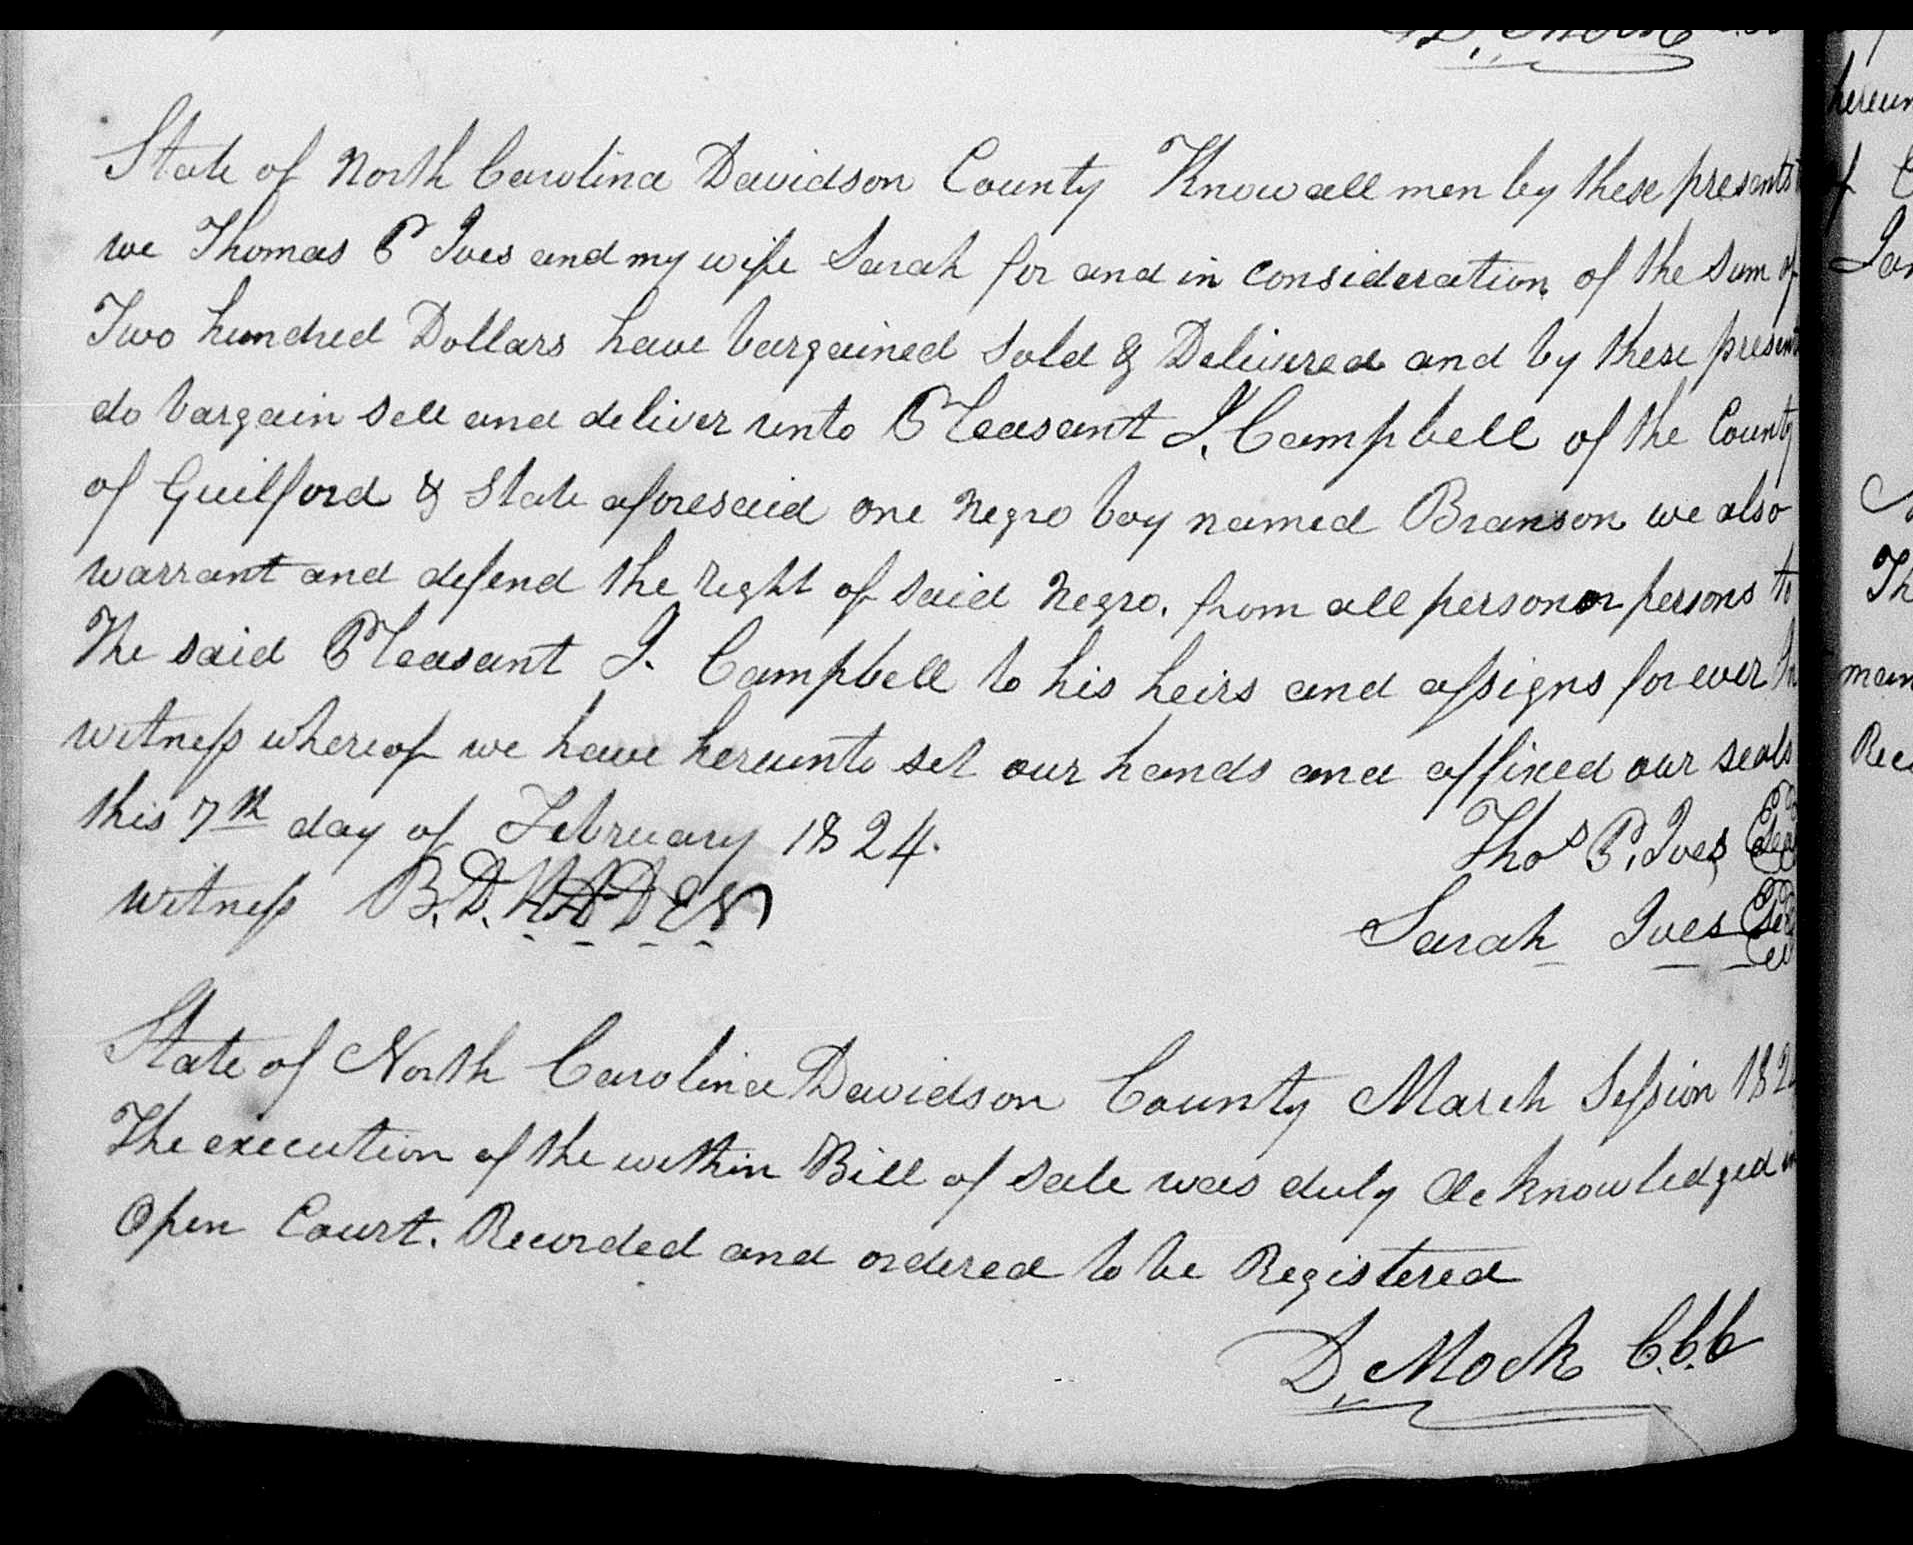 D. Mock
State of North Carolina Davidson County Know all men by these presents
we Thomas P Ives and my wife Sarah for and in consideration of the sum of
Two hundred Dollars have bargained sold & Delivered and by these present
do bargain sell and deliver unto Pleasant I. Campbell of the County
of Guilford & State aforesaid one Negro boy named Branson we also
warrant and defend the right of said Negro. from all person or persons to
The said Pleasant I. Campbell to his heirs and assigns for ever In
witness whereof we have hereunto set our hands and affixed our seals
this 7th day of February 1824.
Thos P. Ives Seal
witness B. D. RADEN
Sarah Ives Seal
State of North Carolina Davidson County March Session 182
The execution of the within Bill of sale was duly Acknowledged in
Open Court. Recorded and ordered to be Registered
D. Mock C.C.C
hereun
of
Th